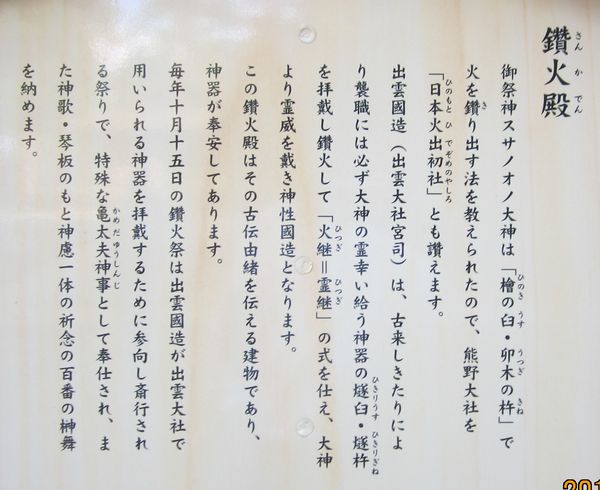 鑽火殿
さんかでん
御祭神スサノオノ大神は「檜の臼・卯木の杵」で
ひのき うす うつぎ きね
火を鑽り出す法を教えられたので、熊野大社を
き
「日本火出初社」とも讃えます。
ひのもとひでぞめのやしろ
出雲國造(出雲大社宮司)は、古来しきたりによ
り襲職には必ず大神の霊幸い給う神器の燧臼・燧杵
ひきりうす ひきりぎね
を拝戴し鑽火して「火継=霊継」の式を仕え、大神
ひつぎ ひつぎ
より霊威を戴き神性國造となります。
この鑽火殿はその古伝由緒を伝える建物であり、
神器が奉安してあります。
毎年十月十五日の鑽火祭は出雲國造が出雲大社で
用いられる神器を拝戴するために参向し斎行され
る祭りで、特殊な亀太夫神事として奉仕され、ま
かめだゆうしんじ
た神歌・琴板のもと神慮一体の祈念の百番の榊舞
を納めます。
201